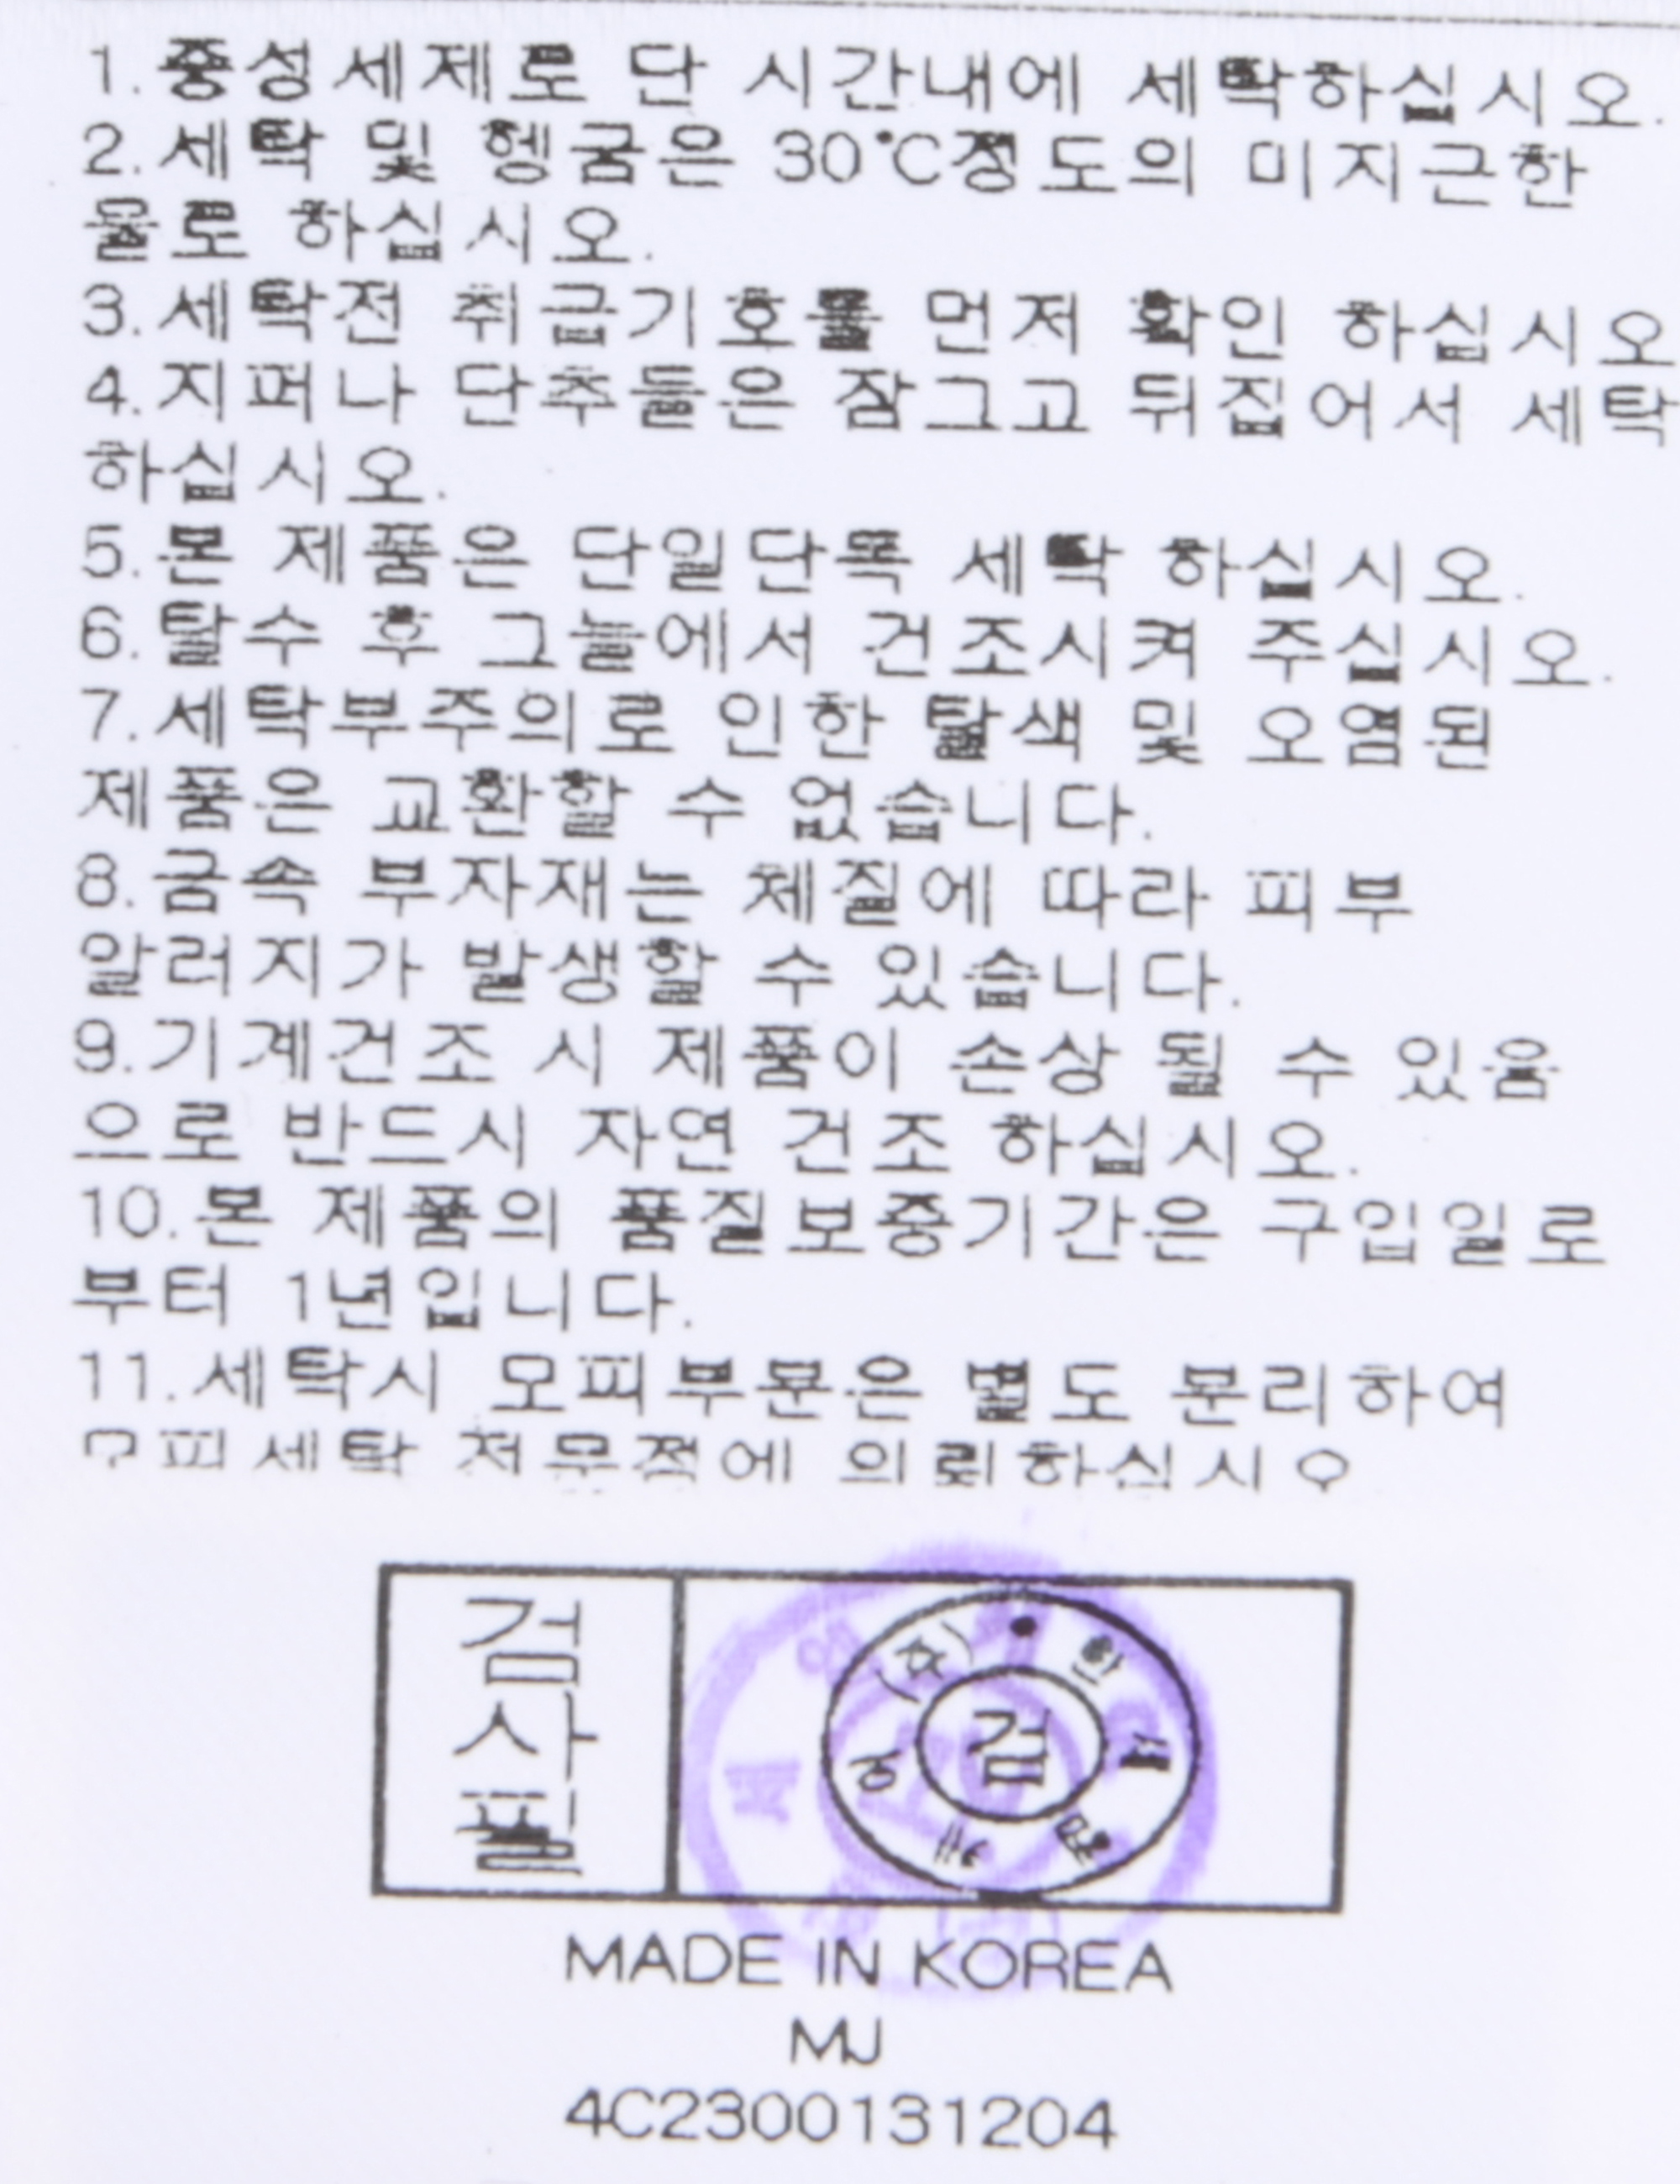 1.중성세제로 단 시간내에 세탁하십시오.
2.세탁 및 헹굼은 30°C정도의 미지근한
물로 하십시오.
3.세탁전 취급기호를 먼저 확인 하십시오
4.지퍼나 단추들은 잠그고 뒤집어서 세탁
하십시오.
5.본 제품은 단일단독 세탁 하십시오.
6.탈수 후 그늘에서 건조시켜 주십시오.
7.세탁부주의로 인한 탈색 및 오염된
제품은 교환할 수 없습니다.
8.금속 부자재는 체질에 따라 피부
알러지가 발생할 수 있습니다.
9.기계건조 시 제품이 손상 될 수 있음
으로 반드시 자연 건조 하십시오.
10.본 제품의 품질보증기간은 구입일로
부터 1년입니다.
11.세탁시 모피부분은 별도 분리하여
모피세탁 전문점에 의뢰하십시오
검사필
(주)한섬
검
MADE IN KOREA
MJ
4C2300131204